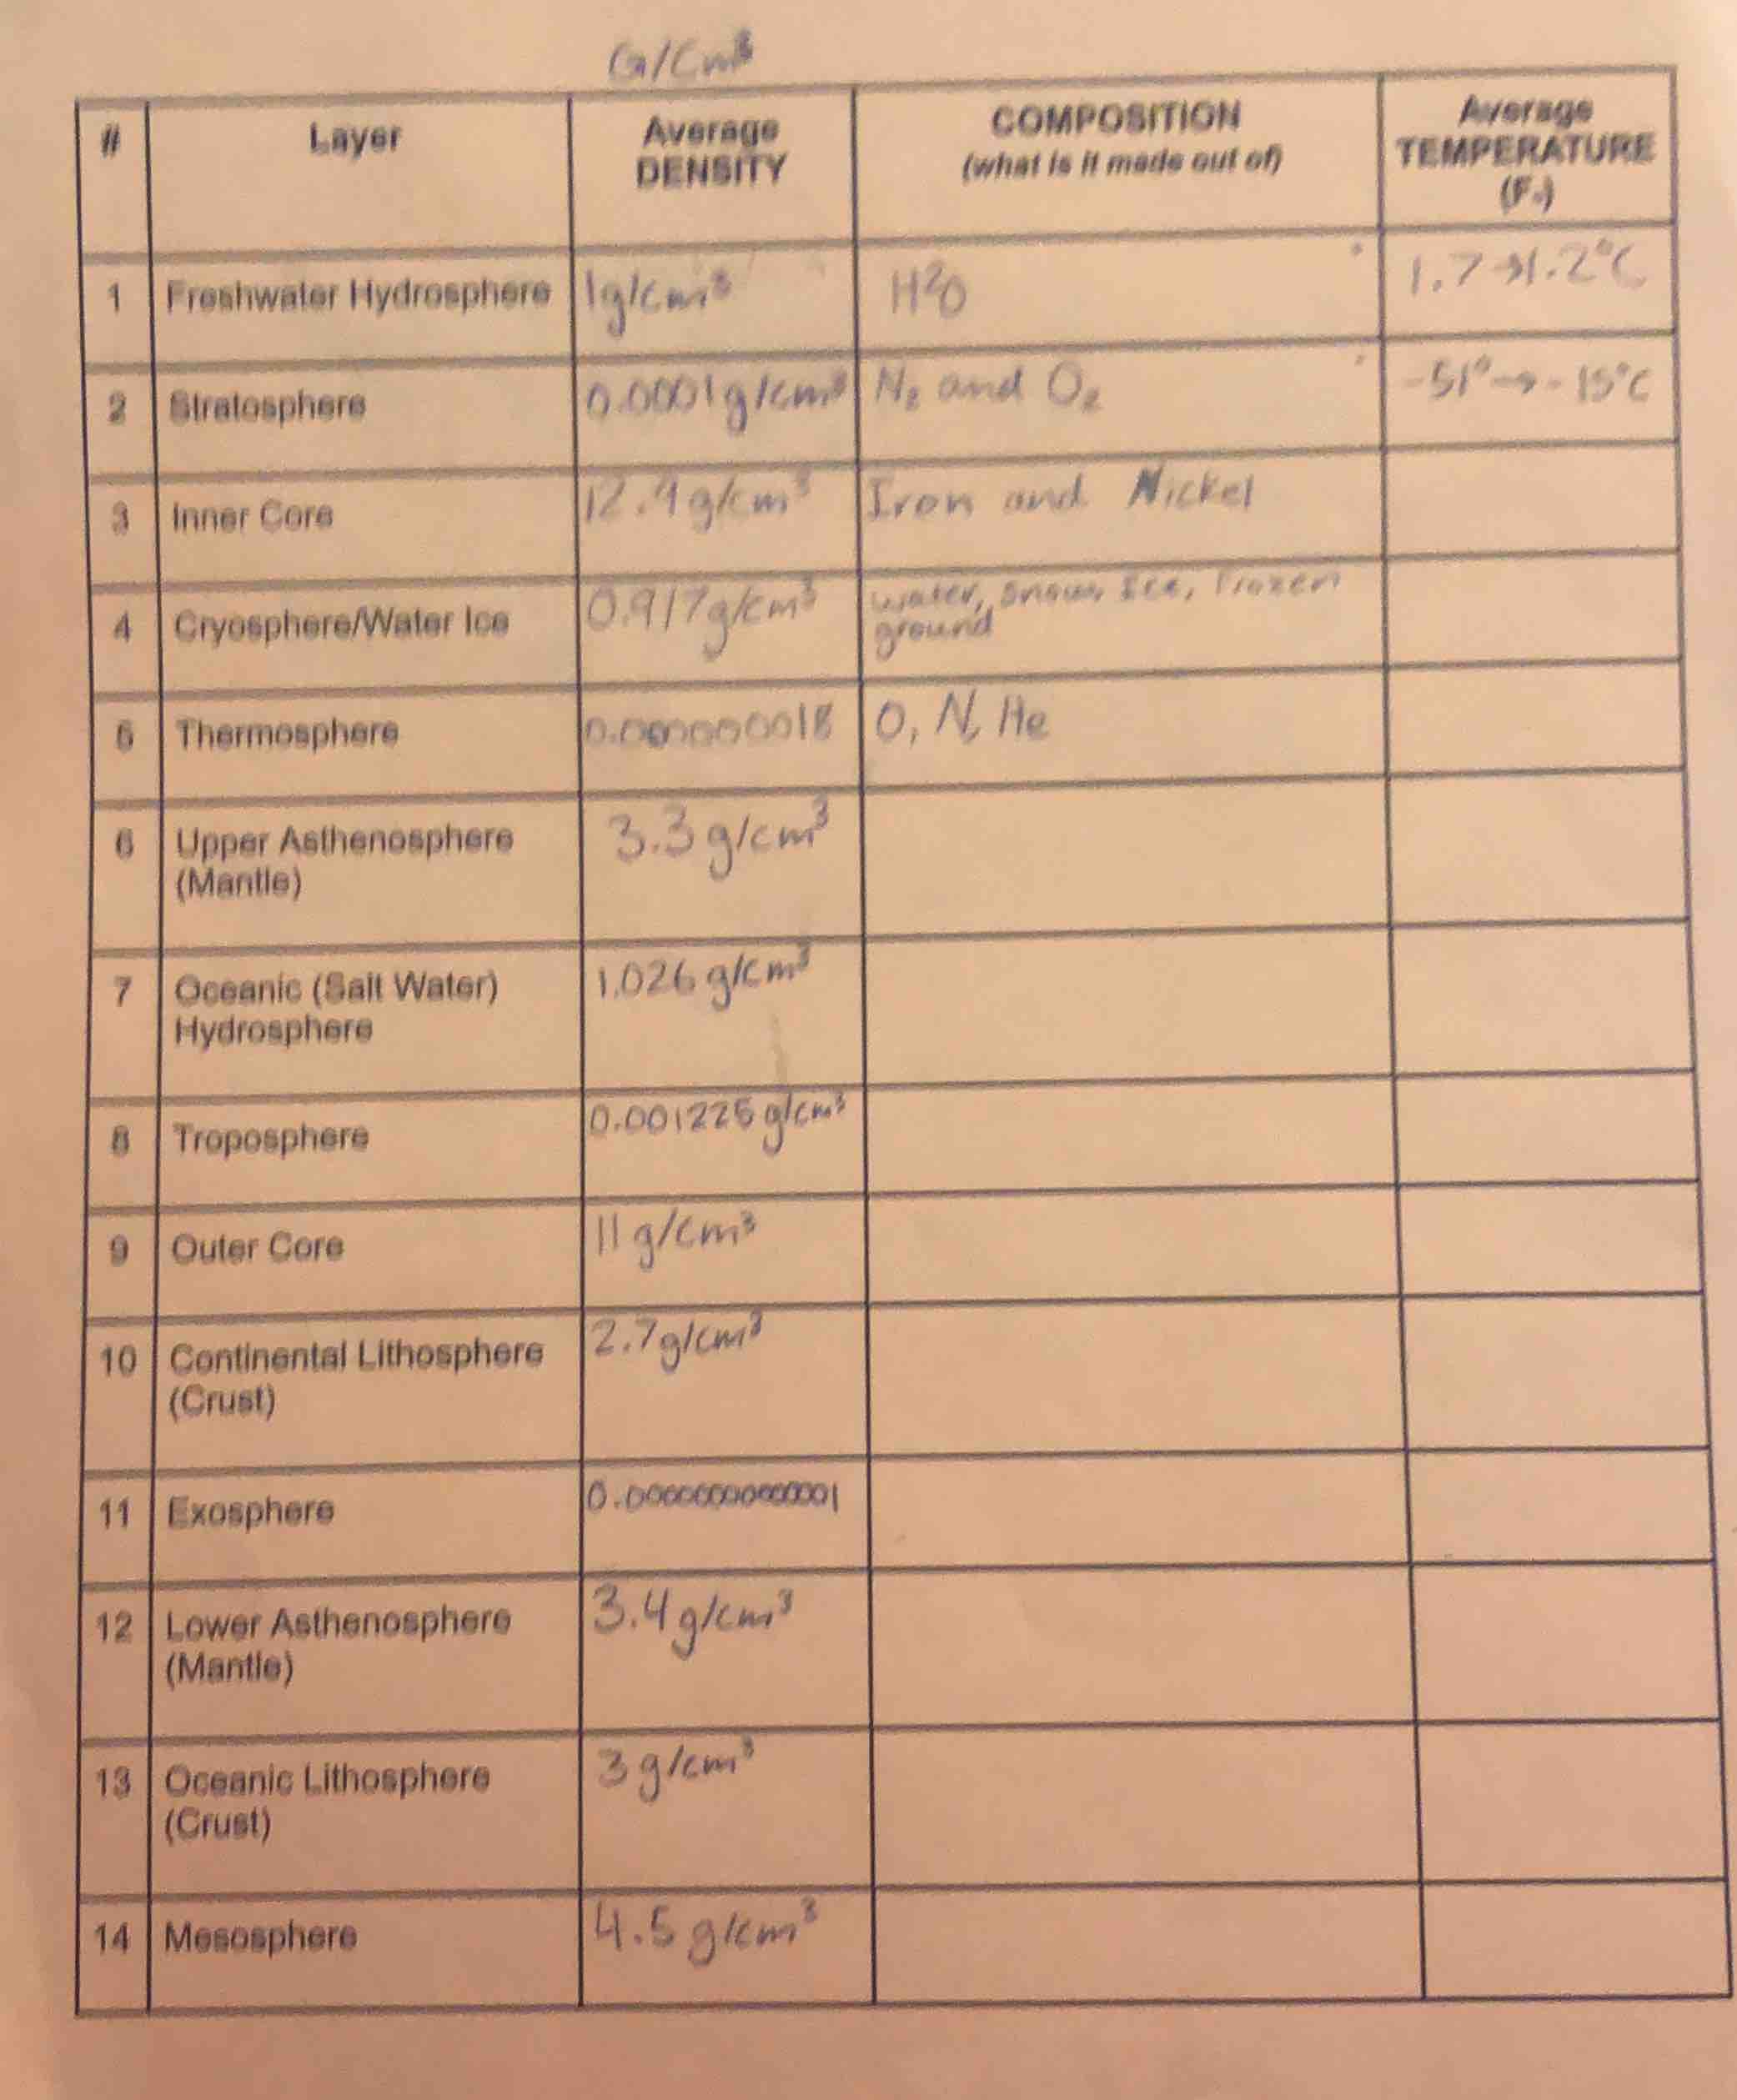 G/Cm³
# Layer Average DENSITY COMPOSITION (what is it made out of) Average TEMPERATURE (F.)
1 Freshwater Hydrosphere 1g/cm³ H²O 1.7→1.2°C
2 Stratosphere 0.0001g/cm³ N₂ and O₂ -51°→-15°C
3 Inner Core 12.9g/cm³ Iron and Nickel
4 Cryosphere/Water Ice 0.917g/cm³ water, snow, Ice, Frozen
ground
5 Thermosphere O, N, He
6 Upper Asthenosphere 3.3 g/cm³
(Mantle)
7 Oceanic (Salt Water) 1.026 g/cm³
Hydrosphere
8 Troposphere 0.001225 g/cm³
9 Outer Core 11 g/cm³
10 Continental Lithosphere 2.7g/cm³
(Crust)
11 Exosphere
12 Lower Asthenosphere 3.4 g/cm³
(Mantle)
13 Oceanic Lithosphere 3 g/cm³
(Crust)
14 Mesosphere 4.5 g/cm³